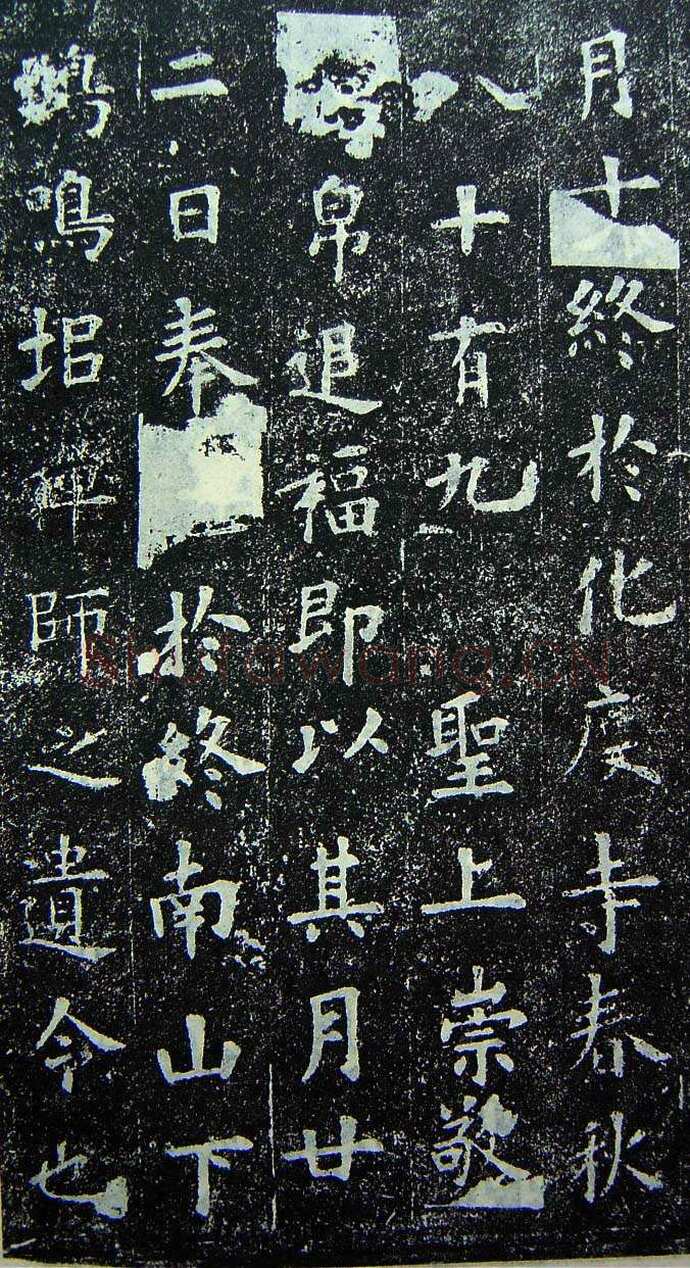 月十終於化度寺春秋
八十有九聖上崇敬
帛追福即以其月廿
二日奉於終南山下
鵄鳴埳禪師之遺令也